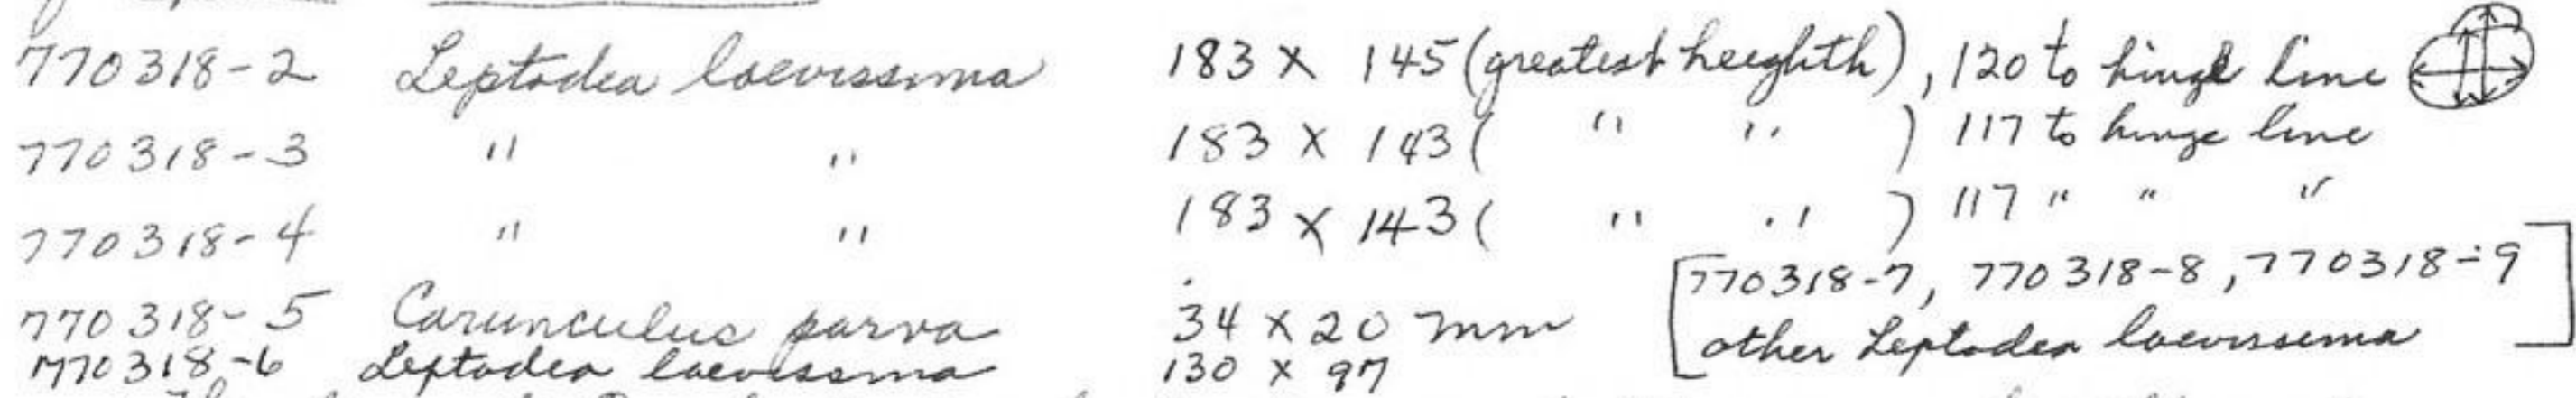 770318-2 Leptodea laevissima 183 x 145 (greatest heighth), 120 to hinge line
770318-3 " " 183 x 143 ( " " ) 117 to hinge line
770318-4 " " 183 x 143 ( " " ) 117 " " "
770318-5 Carunculus parva 34 x 20 mm [770318-7, 770318-8, 770318-9
770318-6 Leptodea laevissima 130 x 97 other Leptodea laevissima]